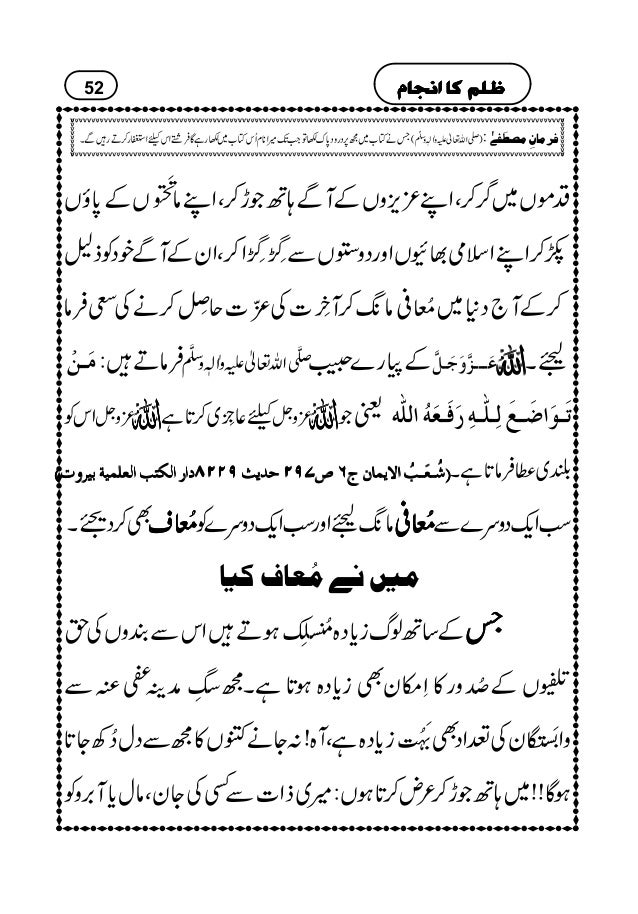 ظلم کا انجام
52
فرمانِ مصطَفٰے : (صلی اللہ تعالیٰ علیہ والہٖ وسلّم) جس نے کتاب میں مجھ پر درود پاک لکھا تو جب تک میرا نام اُس کتاب میں لکھا رہے گا فرشتے اس کیلئے استغفار کرتے رہیں گے۔
قدموں میں گر کر، اپنے عزیزوں کے آگے ہاتھ جوڑ کر، اپنے ماتَحْتوں کے پاؤں
پکڑ کر اپنے اسلامی بھائیوں اور دوستوں سے گِڑگِڑا کر، ان کے آگے خود کو ذلیل
کر کے آج دنیا میں مُعافی مانگ کر آخِرت کی عزّت حاصِل کرنے کی سعی فرما
لیجئے۔ اللہ عَزَّوَجَلَّ کے پیارے حبیب صلَّی اللہ تعالیٰ علیہ والہٖ وسلَّم فرماتے ہیں: مَنْ
تَوَاضَعَ لِلّٰہِ رَفَعَہُ اللہ یعنی جو اللہ عزوجل کیلئے عاجِزی کرتا ہے اللہ عزوجل اس کو
بلندی عطا فرماتا ہے۔ (شُعَبُ الایمان ج۶ ص۲۹۷ حدیث ۸۲۲۹ دار الکتب العلمیة بیروت)
سب ایک دوسرے سے مُعافی مانگ لیجئے اور سب ایک دوسرے کو مُعاف بھی کر دیجئے۔
میں نے مُعاف کیا
جس کے ساتھ لوگ زیادہ مُنسلِک ہوتے ہیں اس سے بندوں کی حق
تلفیوں کے صُدور کا اِمکان بھی زیادہ ہوتا ہے۔ مجھ سگِ مدینہ عفی عنہ سے
وابَستگان کی تعداد بھی بَہُت زیادہ ہے، آہ! نہ جانے کتنوں کا مجھ سے دل دُکھ جاتا
ہوگا!! میں ہاتھ جوڑ کر عرض کرتا ہوں: میری ذات سے کسی کی جان، مال یا آبرو کو